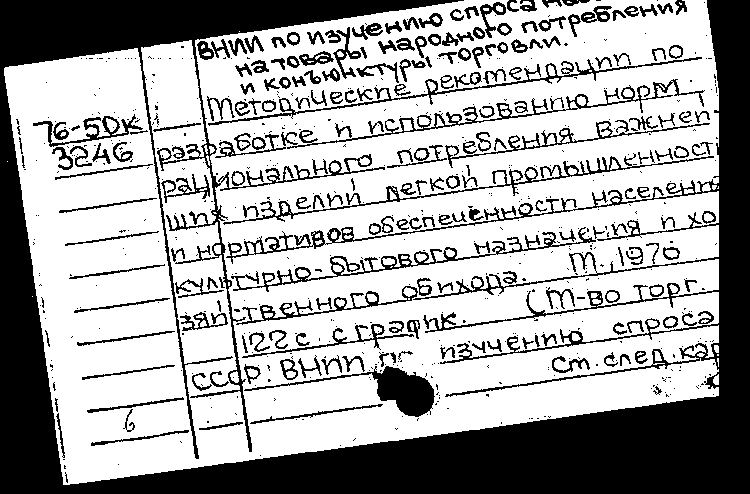 ВНИИ по изучению спроса нас
на товары народного потребления
и конъюнктуры торговли.
Методические рекомендации по
76-50к
3246
разработке и использованию норм
рационального потребления важней-
ших изделий легкой промышленност
и нормативов обеспеченности населени
культурно-бытового назначения и хо
зяйственного обихода. М., 1976
122 с. с график. (М-во торг.
СССР! ВНИИ по изучению спроса
Ст. след. кар
6